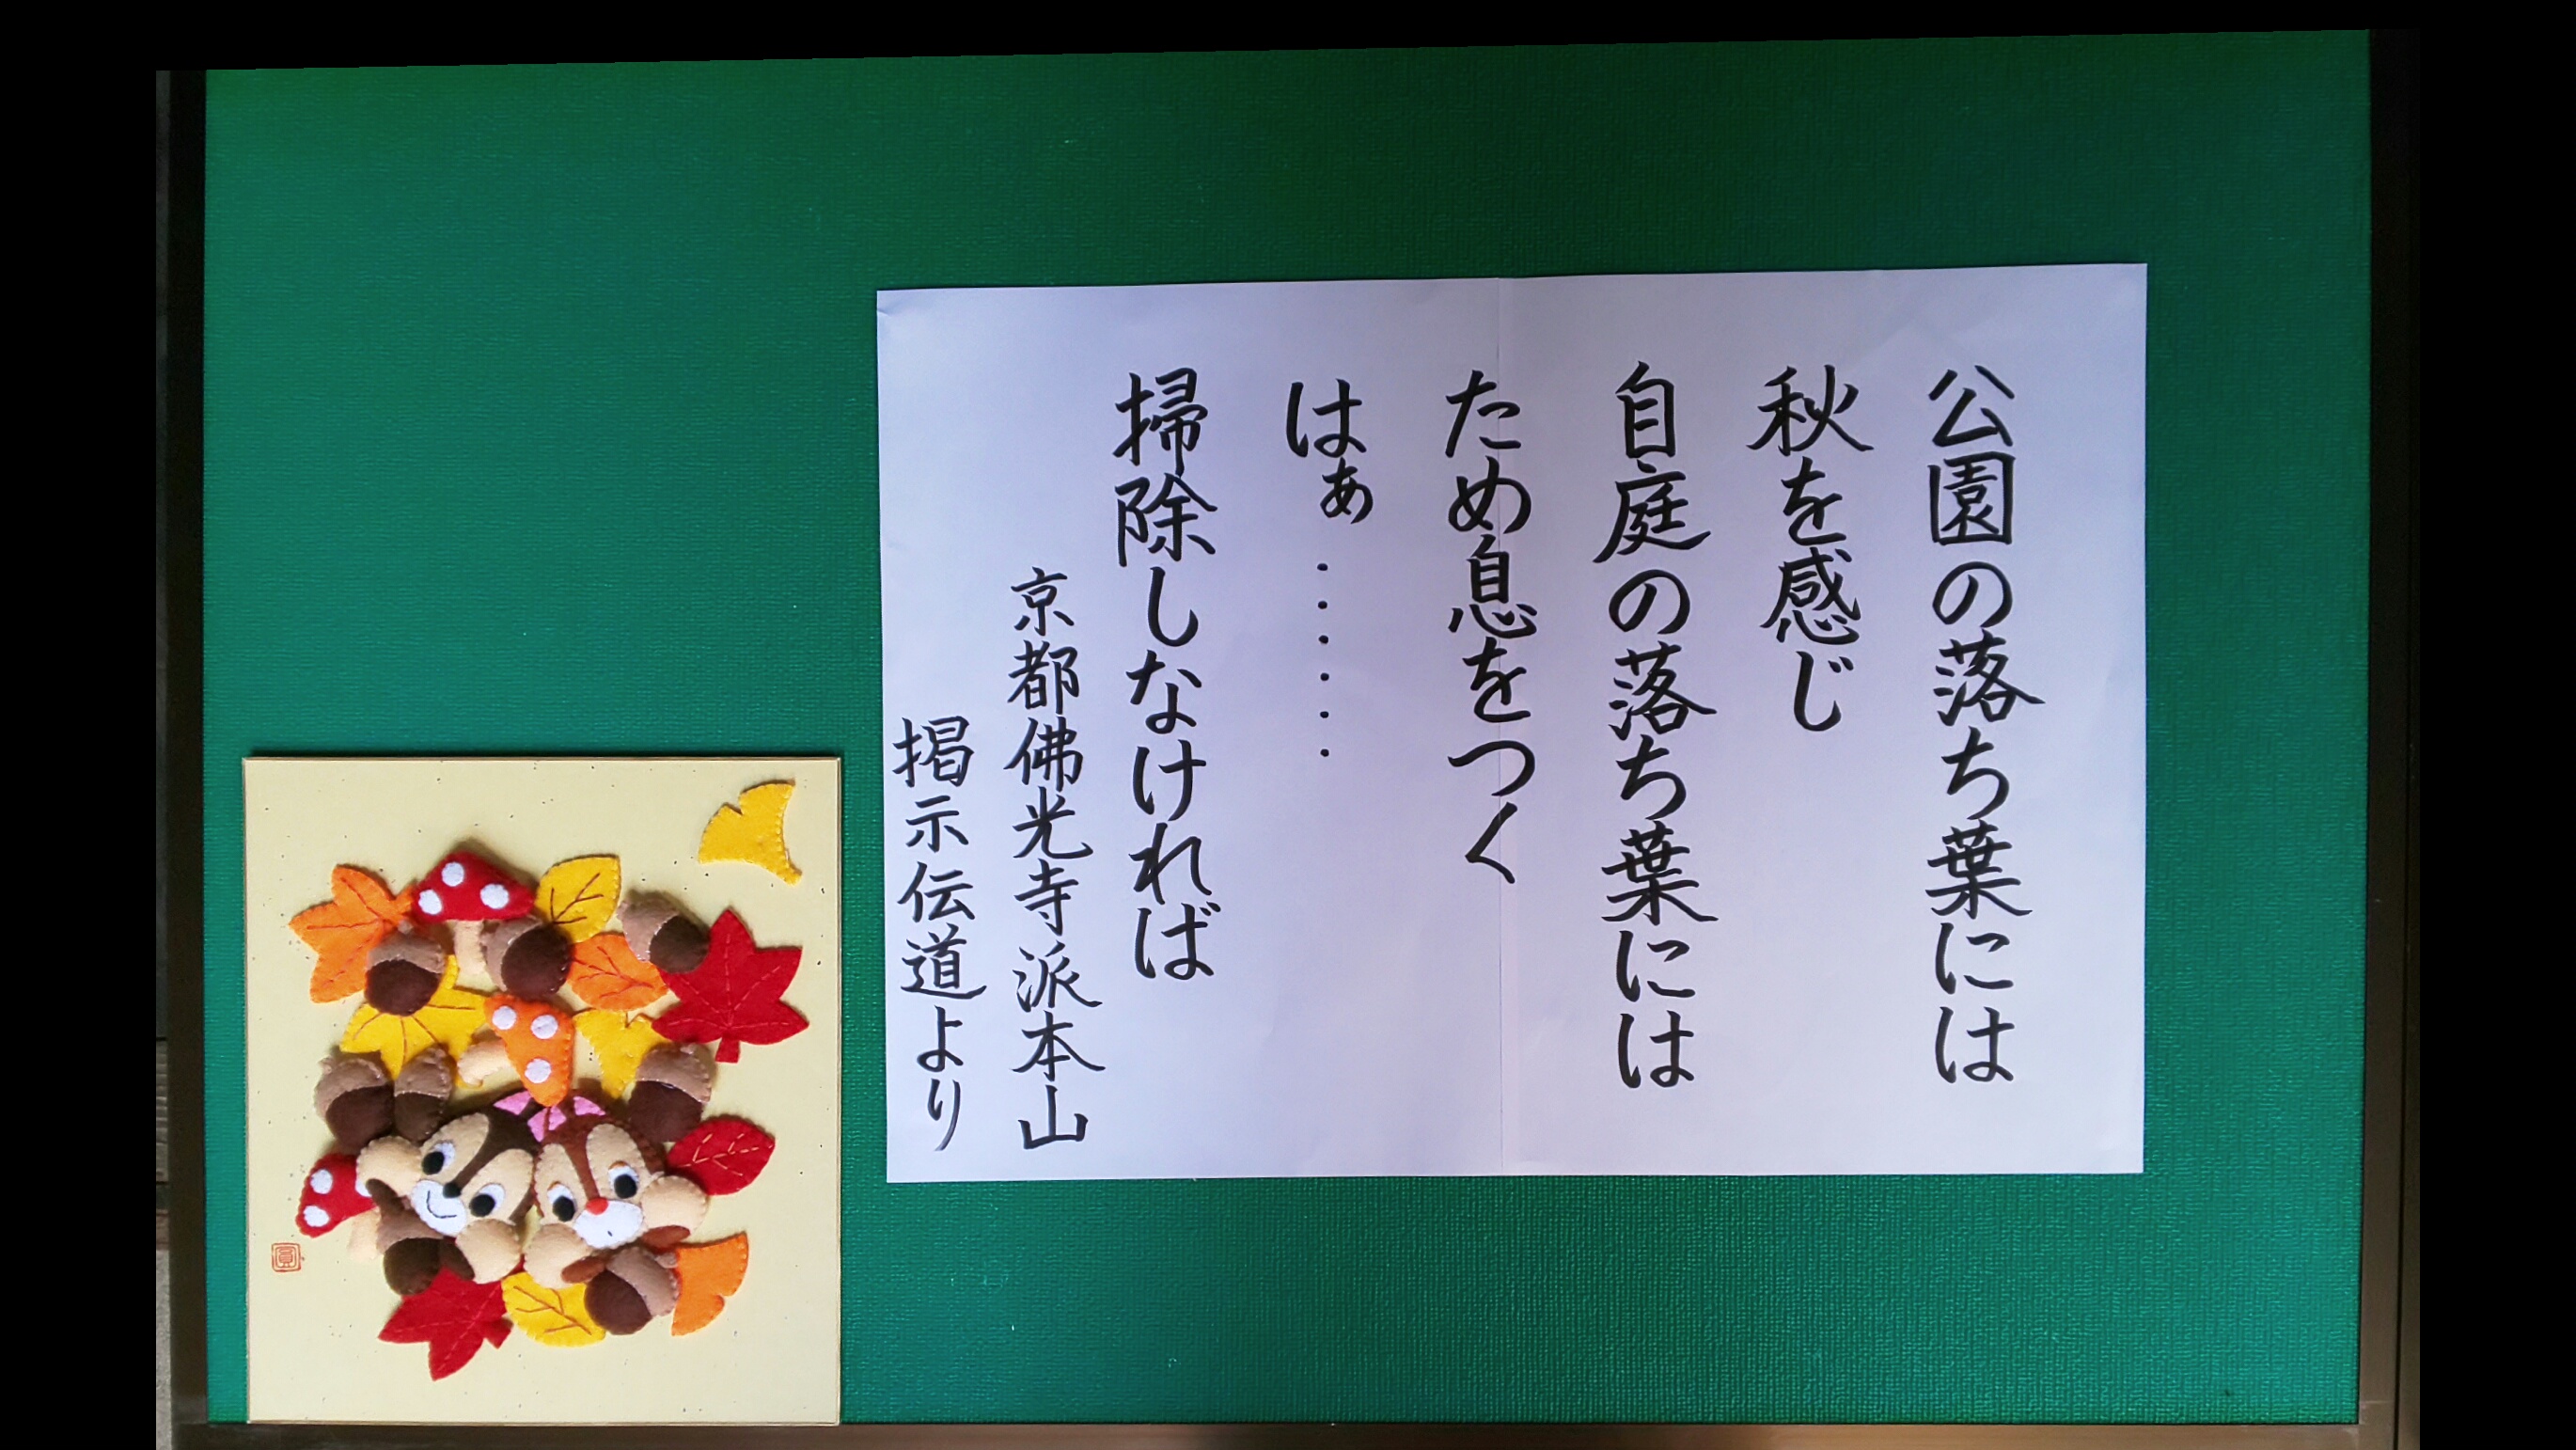 公園の落ち葉には
秋を感じ
自庭の落ち葉には
ため息をつく
はぁ・・・・・・
掃除しなければ
京都佛光寺派本山
掲示伝道より